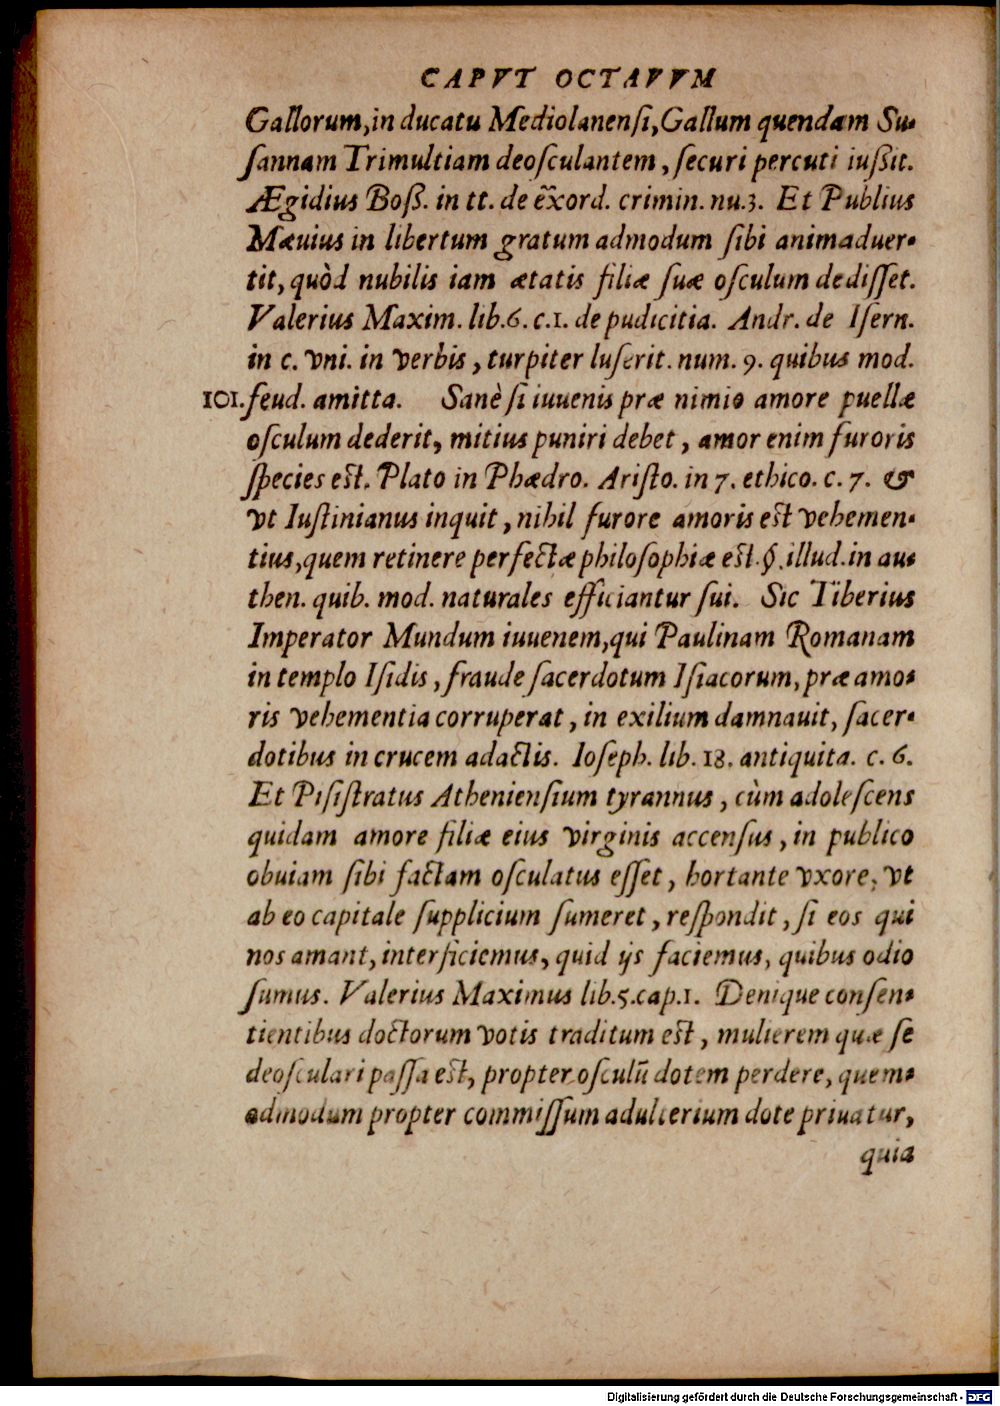 CAPVT OCTAVVM
Gallorum, in ducatu Mediolanensi, Gallum quendam Su-
sannam Trimultiam deosculantem, securi percuti iußit.
Ægidius Boß. in tt. de ex̃ord. crimin. nu.3. Et Publius
Mæuius in libertum gratum admodum sibi animaduer-
tit, quòd nubilis iam ætatis filiæ suæ osculum dedisset.
Valerius Maxim. lib.6. c.1. de pudicitia. Andr. de Isern.
in c. vni. in verbis, turpiter luserit. num. 9. quibus mod.
101. feud. amitta. Sanè si iuuenis præ nimio amore puellæ
osculum dederit, mitius puniri debet, amor enim furoris
species est. Plato in Phædro. Aristo. in 7. ethico. c. 7. &
vt Iustinianus inquit, nihil furore amoris est vehemen-
tius, quem retinere perfectæ philosophiæ est. §. illud. in au-
then. quib. mod. naturales efficiantur sui. Sic Tiberius
Imperator Mundum iuuenem, qui Paulinam Romanam
in templo Isidis, fraude sacerdotum Isiacorum, præ amo-
ris vehementia corruperat, in exilium damnauit, sacer-
dotibus in crucem adactis. Ioseph. lib. 18. antiquita. c. 6.
Et Pisistratus Atheniensium tyrannus, cùm adolescens
quidam amore filiæ eius virginis accensus, in publico
obuiam sibi factam osculatus esset, hortante vxore, vt
ab eo capitale supplicium sumeret, respondit, si eos qui
nos amant, interficiemus, quid ijs faciemus, quibus odio
sumus. Valerius Maximus lib.5.cap.1. Denique consen-
tientibus doctorum votis traditum est, mulierem quæ se
deosculari passa est, propter osculũ dotem perdere, quem-
admodum propter commissum adulterium dote priuatur,
quia
Digitalisierung gefördert durch die Deutsche Forschungsgemeinschaft - DFG